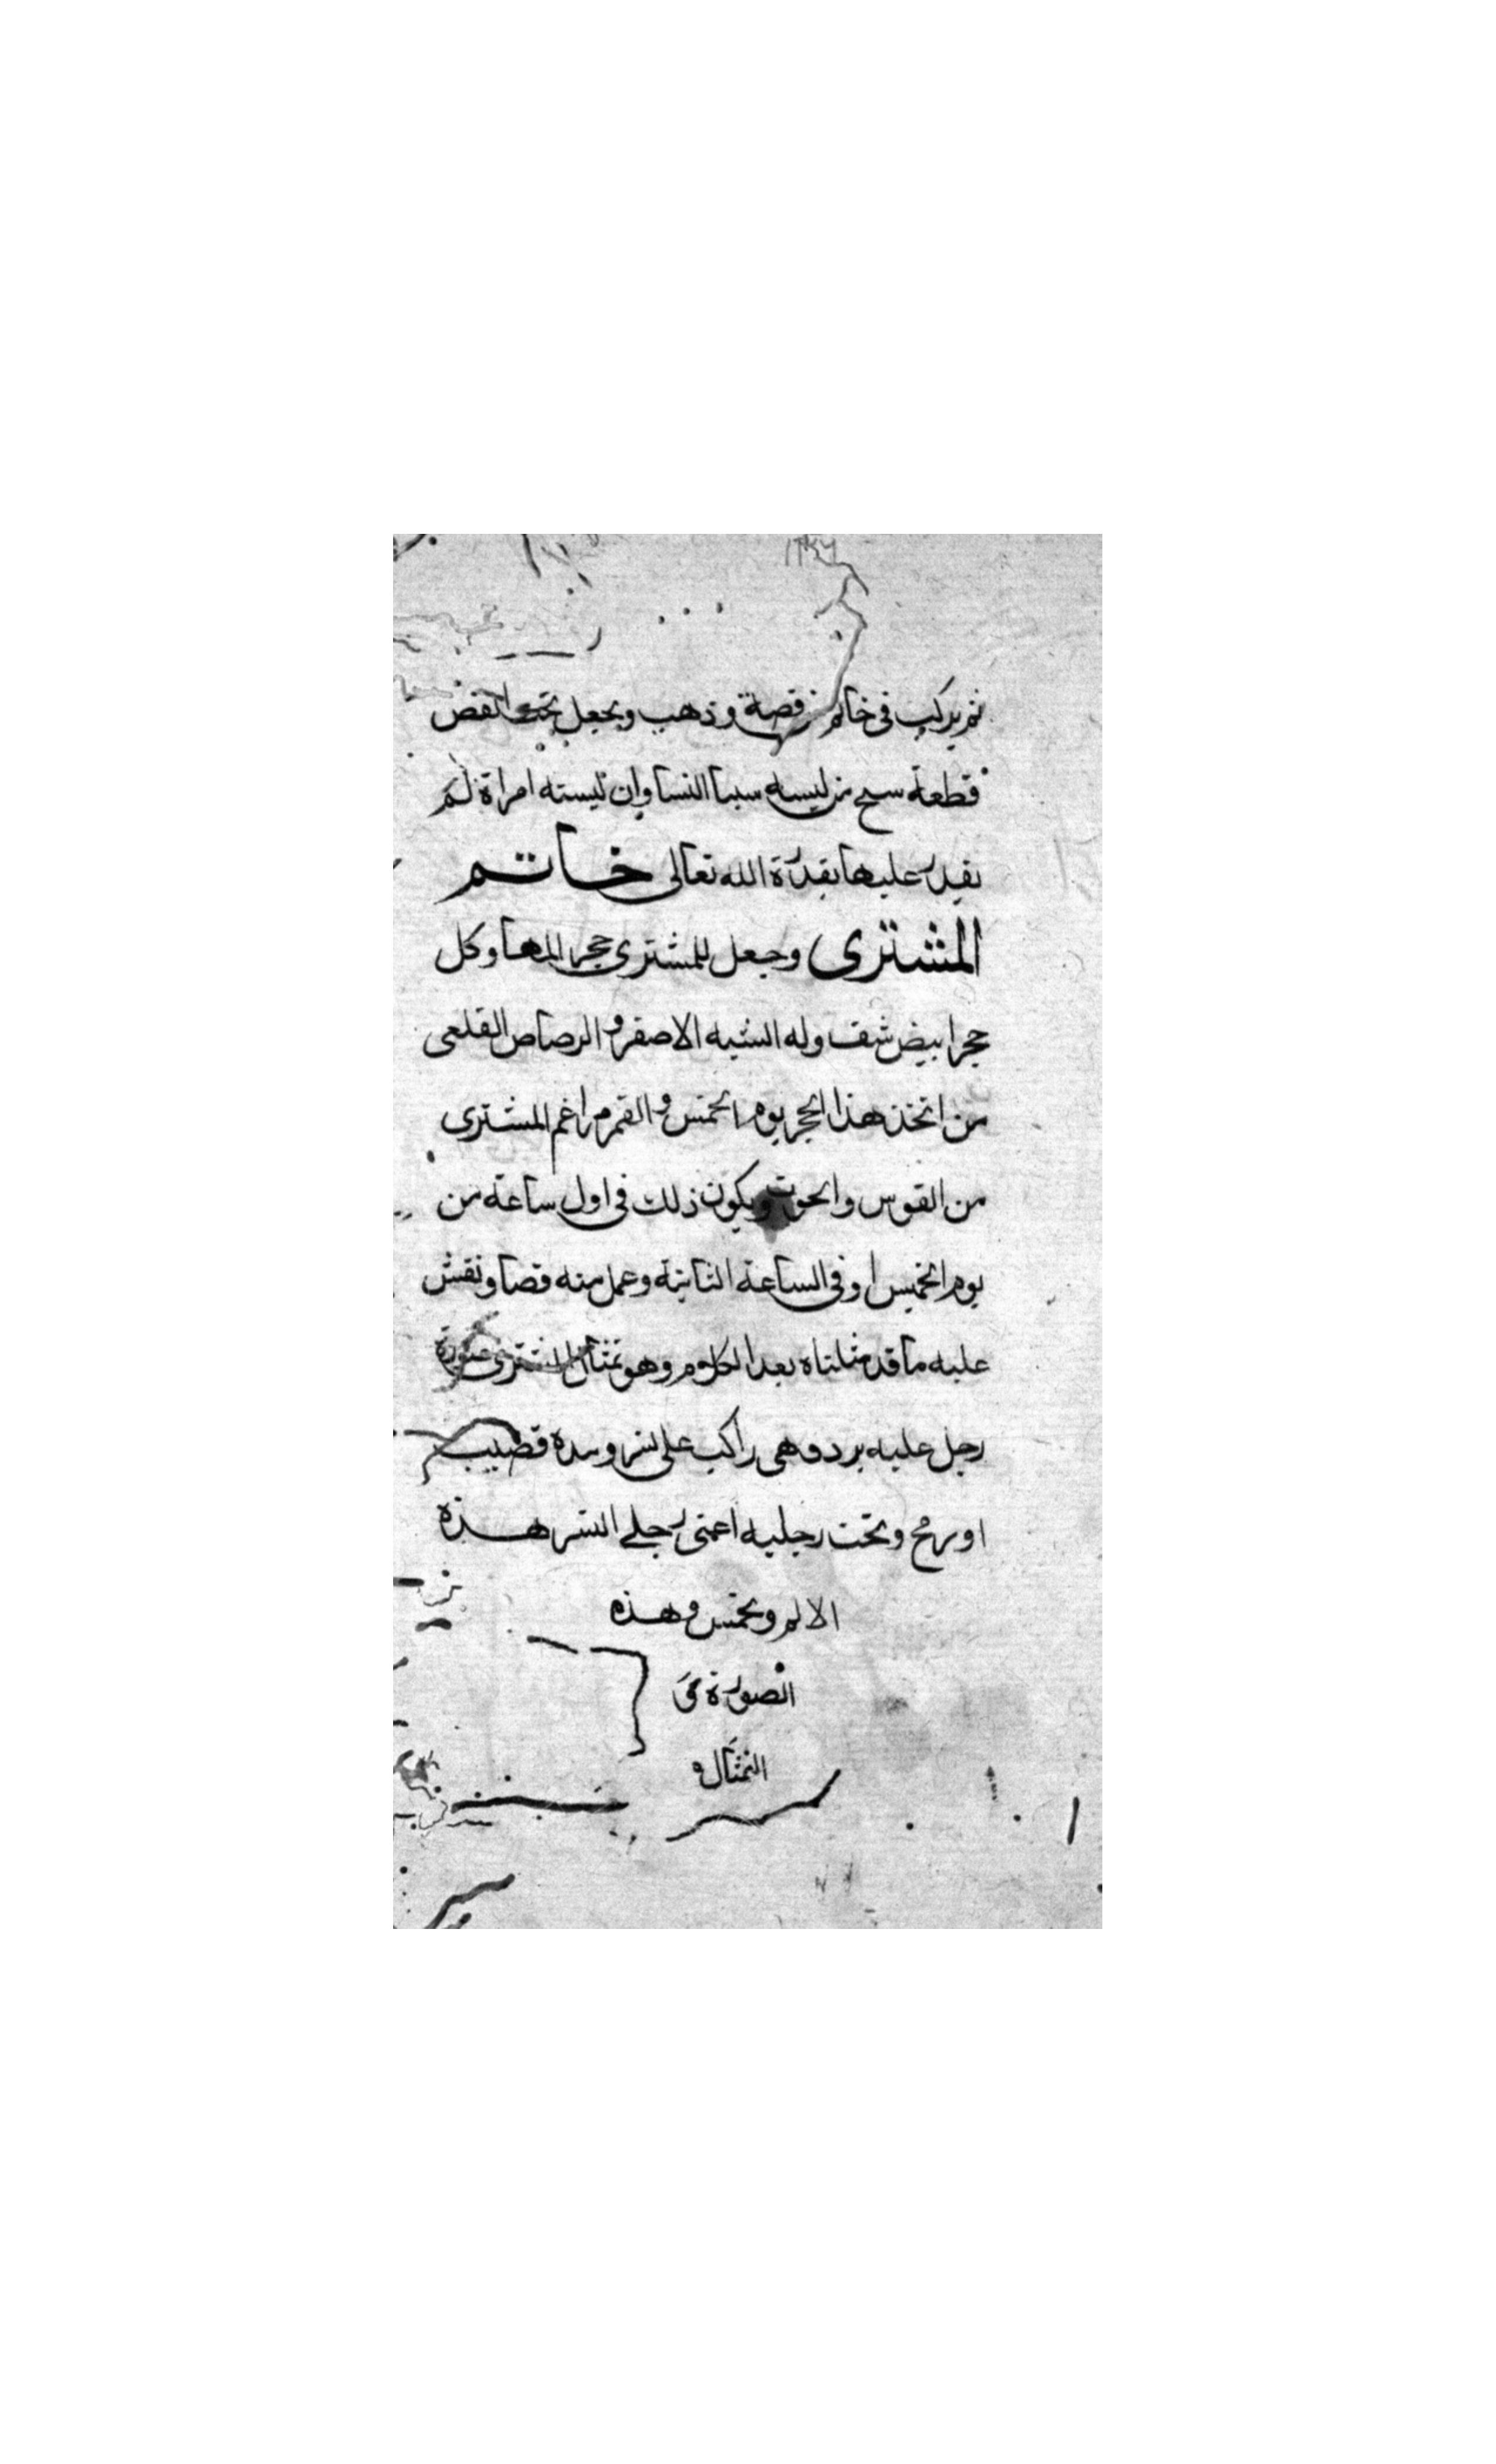 ثم يركب فى خاتم فضة وذهب ويجعل تحت الفص
قطعة سبح من لبسه سبا النسا وان لبسته امراة لم
يقدر عليها بقدرة الله تعالى خاتم
المشترى وجعل للمشترى حجر المها وكل
حجر ابيض شف وله الشبه الاصفر والرصاص القلعى
من اتخذ هذا الحجر يوم الخمس والقمر
المشترى
من القوس والحوت ويكون ذلك فى اول ساعة من
يوم الخميس او فى الساعة الثانية وعمل منه فصا ونقش
عليه ما قد مثلناه بعد الكلام وهو تمثال المشترى صورة
رجل عليه برد وهى راكب على نسر وبيده قضيب
او رمح وتحت رجليه اعنى رجلى النسر هذه
وهذه
الصورة فى
التمثال